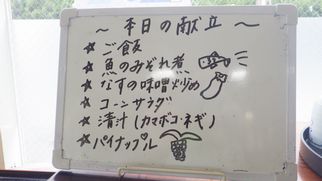 ～本日の献立～
★ご飯
★魚のみぞれ煮
★なすの味噌炒め
★コーンサラダ
★清汁(カマボコ・ネギ)
★パイナップル